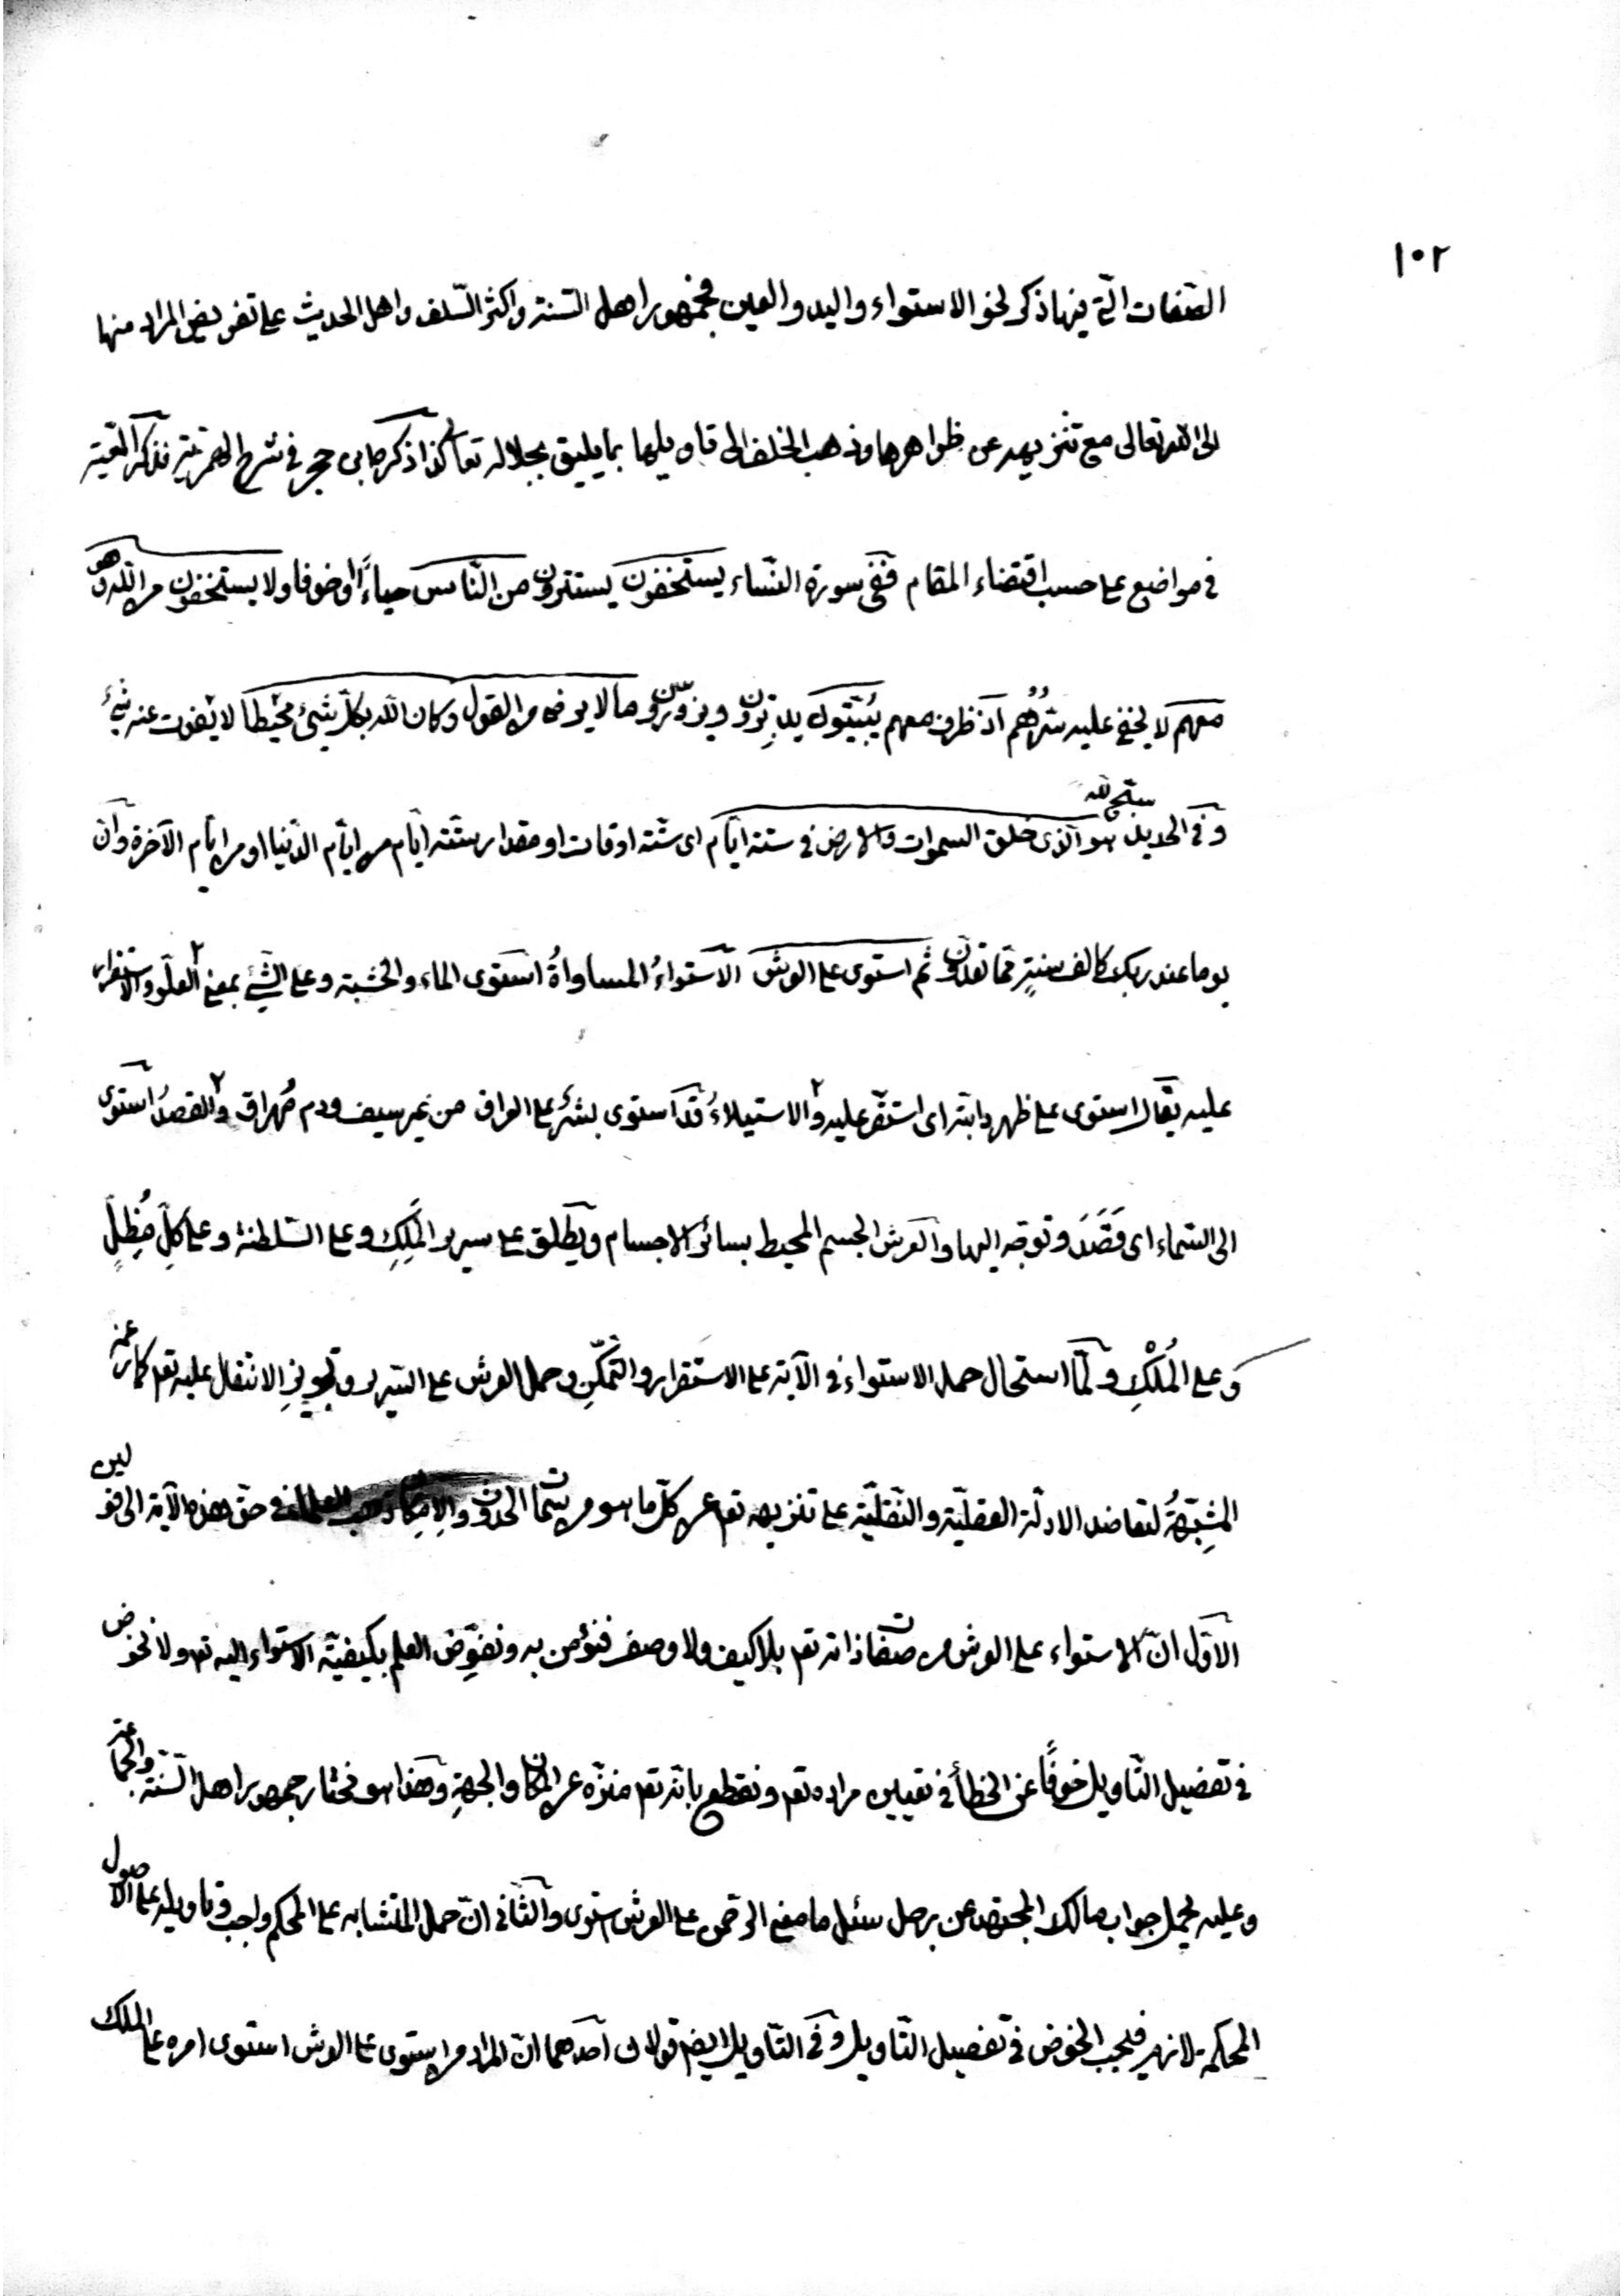 ١٠٢
الصّفات الّتي فيها ذكر نحو الاستواء واليد والعين فجمهور اهل السّنة واكثر السّلف واهل الحديث على تفويض المراد منها
الى الله تعالى مع تنزيهه عن ظواهرها وذهب الخلف الى تاويلها بما يليق بجلاله تعا كذا ذكره ابن حجر في شرح الهمزية فذكر المعية
في مواضع على حسب اقتضاء المقام ففي سورة النّساء يستخفون يستترون من النّاس حياءً او خوفا ولا يستخفون من الله وهو
معهم لا يخفى عليه سرُّهُم اذ ظرف معهم يُبَيّتون يدبّرون ويزوّرون ما لا يرضى من القول وكان الله بكلّ شئ محيطا لا يفوت عنه شئ
وفي الحديد سبّح لله هو الّذي خلق السموات والارض في ستة ايّام اى ستّة اوقات او مقدار ستّة ايّام من ايّام الدّنيا او من ايّام الآخرة وانّ
يوما عند ربك كالف سنةٍ ممّا تعدّون ثم استوى على العرش الاستواءُ المساواةُ استوى الماء والخشبة وعلى الشّئ بمعنى العلوّ والاستقرار
عليه يقال استوى على ظهر دابته اى استقرّ عليه والاستيلاءُ قد استوى بشرٌ على العراق من غير سيف ودم مُهراق والقصدُ استوى
الى السّماء اى قَصَدَ وتوجّه اليها والعرش الجسم المحيط بسائر الاجسام ويطلق على سرير المَلِكِ وعلى السّلطنة وعلى كلّ مُظِلٍّ
وعلى المُلْكِ ولمّا استحال حمل الاستواء في الآية على الاستقرار والتّمكّنِ وحمل العرش على السّرير وتجويزِ الانتقال عليه تعم كما زعمه
المشبّهةُ لتعاضد الادلّة العقليّة والنّقليّة على تنزيهه تعم عن كلّ ما هو من سمات الحدوث والامكان ذهب العلماء في حقّ هذه الآية الى قولين
الاوّل انّ الاستواء على العرش من صفات ذاته تعم بلا كيف ولا وصف فنؤمن به ونفوّض العلم بكيفيّة الاستواء اليه تعم ولا نخوض
في تفصيل التّاويل خوفًا عن الخطأ في تعيين مراده تعم ونقطع بانّه تعم منزّه عن المكان والجهةِ وهذا هو مختار جمهور اهل السّنّة والجماعة
وعليه يحمل جواب مالك المجتهد عن رجل سئل ما معنى الرحمن على العرش استوى والثّاني انّ حمل المتشابه على المحكم واجب وتاويله على الاصول
المحكمة لازم فيجب الخوض في تفصيل التّاويل وفي التّاويل ايضم قولان احدهما انّ المراد من استوى على العرش استوى امره على الملك